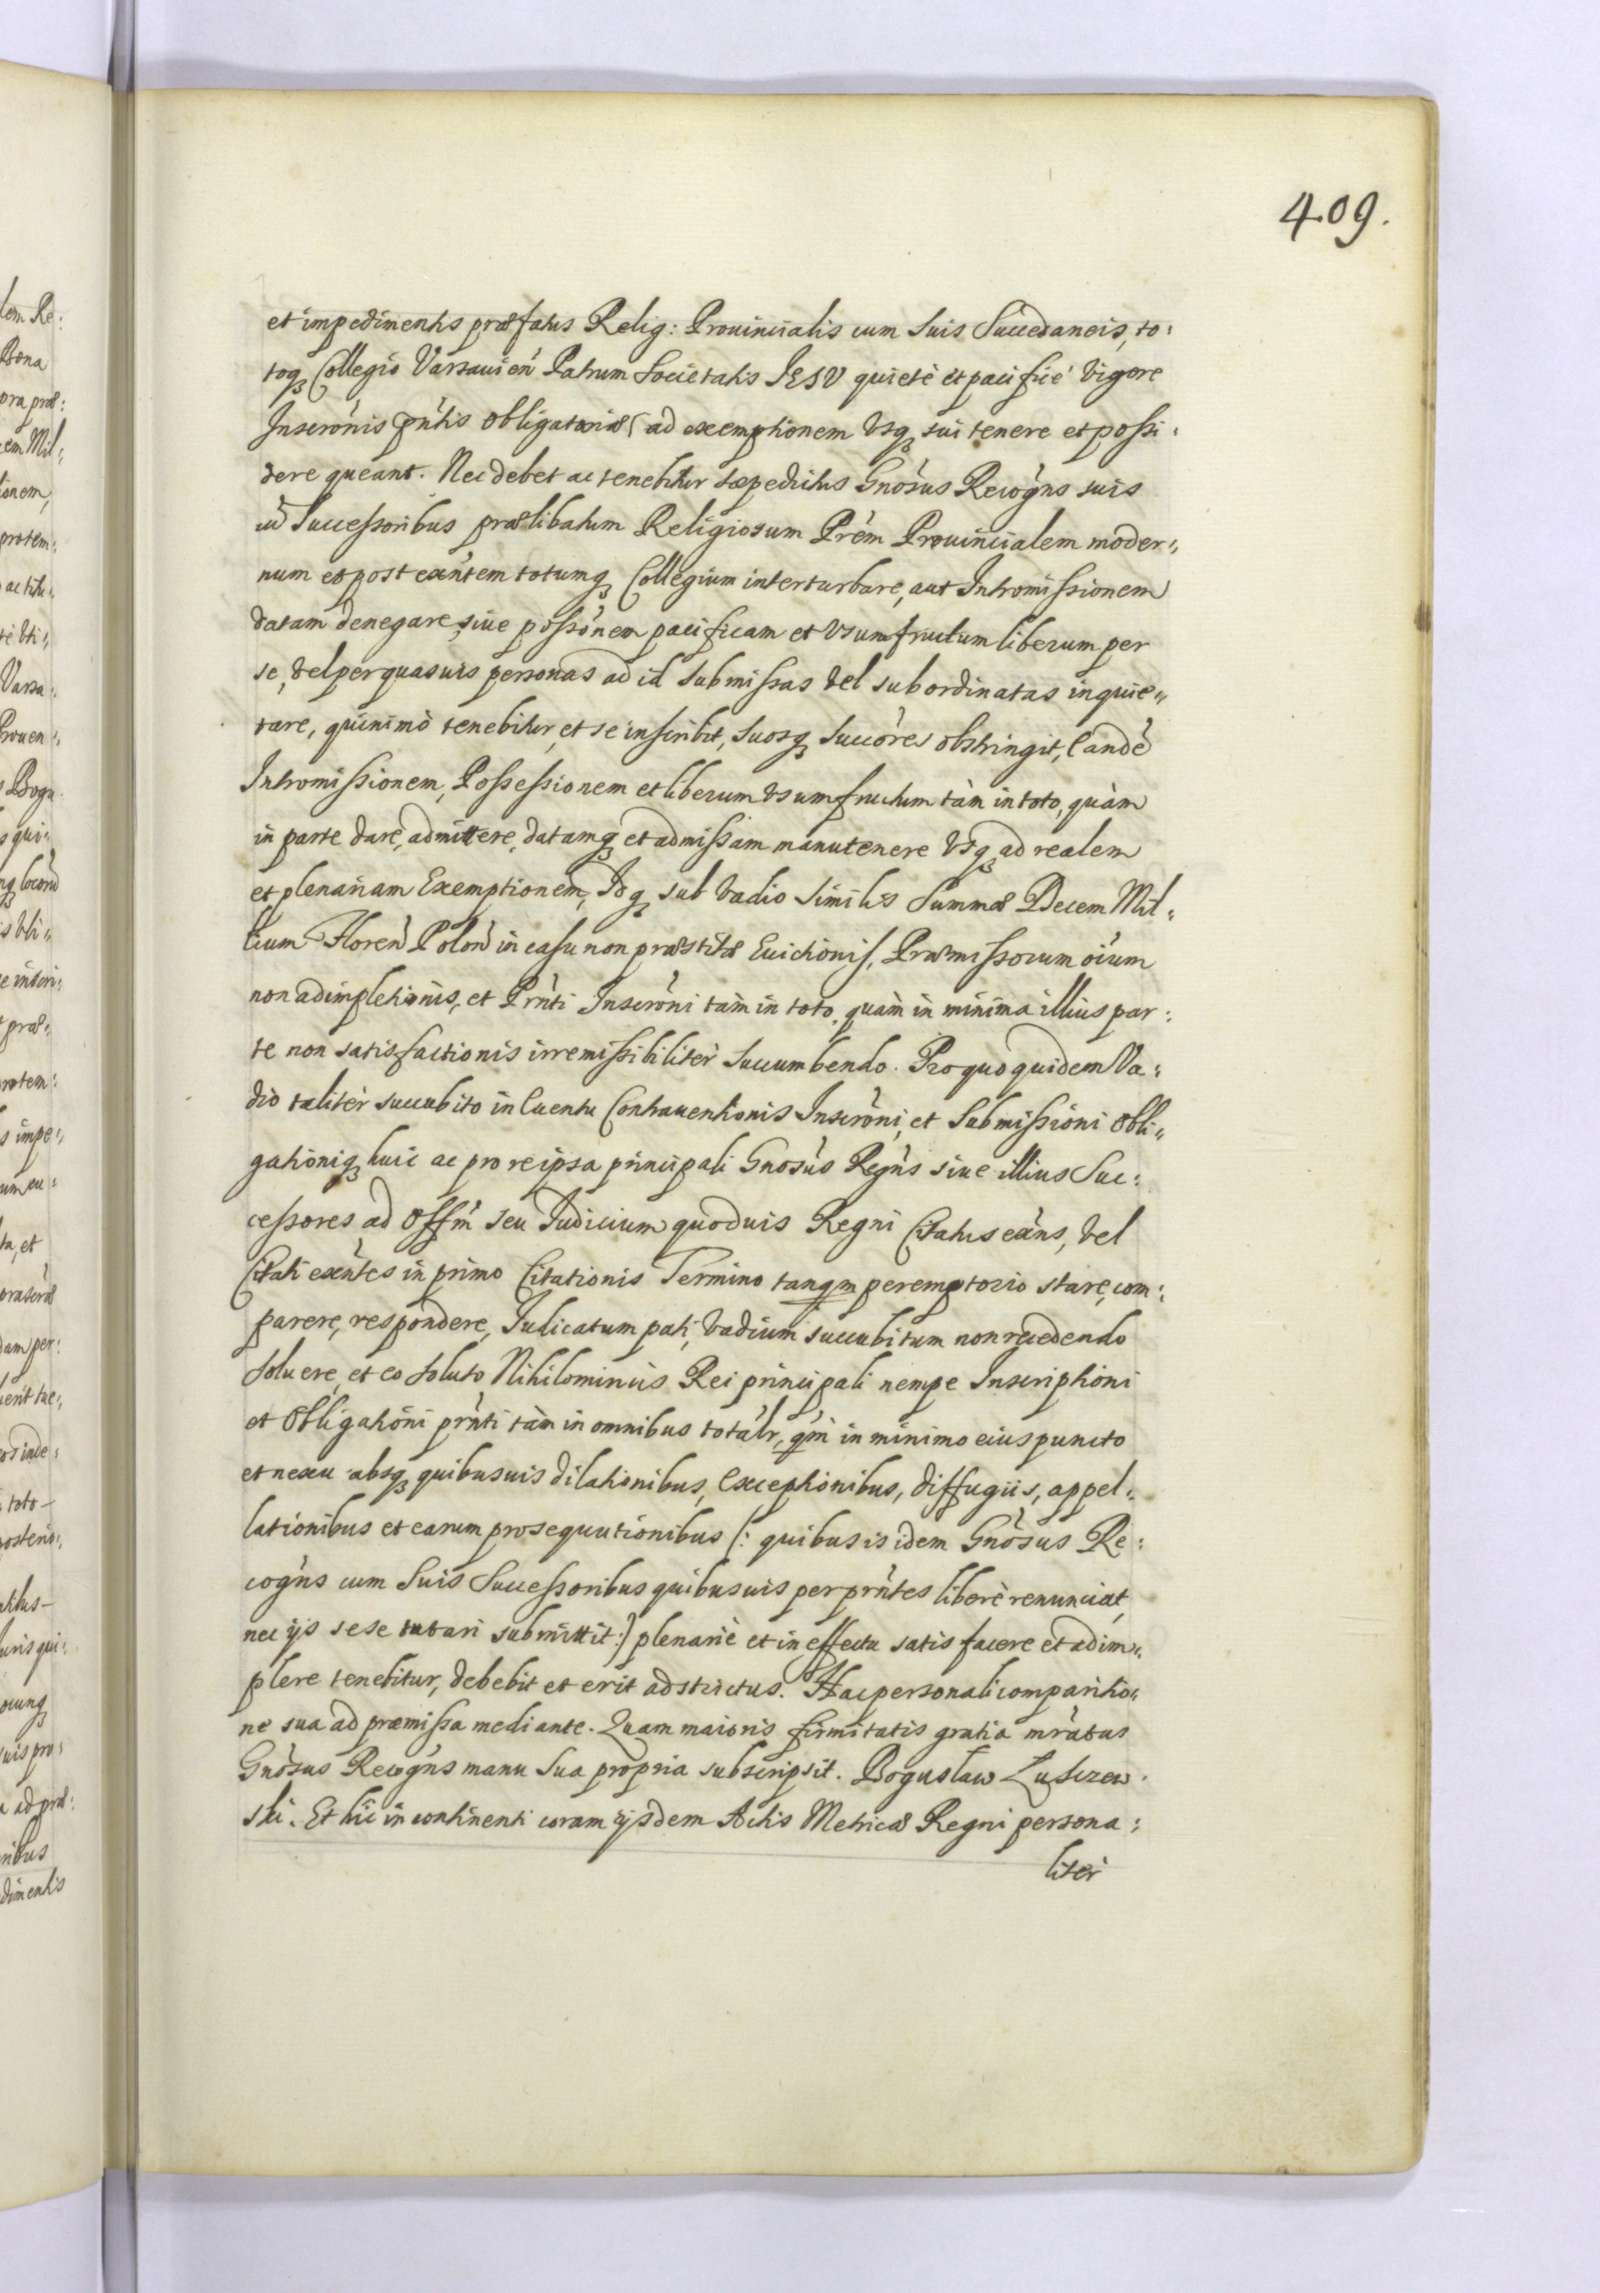 409.
et impedimentis præfatus Relig: Prouincialis cum Suis Succedaneis, to:
toq₃ Collegio Varsauień Patrum Societatis IESV quietè et pacificè Vigore
Inscrónis pńtis obligatoriæ ad exemptionem Vsq₃ sui tenere et possi:
dere queant. Nec debet ac tenebitur sæpedictus Gnósus Recogńs suis
cū Successoribus prælibatum Religiosum Prém Prouincialem moder:
num et post exńtem totumq₃ Collegium interturbare, aut Intromissionem
datam denegare, siue possónem pacificam et Vsumfructum liberum per
se, Vel per quasuis personas ad id Submissas Vel subordinatas inquie:
tare, quinimò tenebitur, et se inscribit, Suosq₃ Succóres obstringit, Eandē
Intromissionem, Possessionem et liberum Vsumfructum tàm in toto, quàm
in parte dare, admittere, datamq₃ et admissam manutenere Vsq₃ ad realem
et plenariam Exemptionem, Idq₃ sub Vadio Similis Summæ Decem Mil:
lium Floreń Poloń in casu non præstitæ Euictionis, Præmissorum óium
non adimpletionis, et Prńti Inscróni tàm in toto, quàm in minima illius par:
te non satisfactionis irremissibilitèr Succumbendo. Pro quo quidem Va:
dio talitèr succubito in Euentu Contrauentionis Inscróni, et Submissioni Obli:
gationiq₃ huic ac pro re ipsa principali Gnosús Rgńs siue illius Suc:
cessores ad Offm̄ seu Iudicium quoduis Regni Citatus exńs, Vel
Citati exńtes in primo Citationis Termino tanqm peremptorio stare, com:
parere, respondere, Iudicatum pati, Vadium succubitum non recedendo
soluere, et eo soluto Nihilominùs Rei principali nempe Inscriptioni
et Obligationi prńti tàm in omnibus totálr, qm̄ in minimo eius puncto
et nexu absq₃ quibusuis dilationibus, Exceptionibus, diffugiis, appel:
lationibus et earum prosequutionibus (: quibus is idem Gnósus Re:
cogńs cum Suis Successoribus quibusuis per prńtes liberè renunciat,
nec ijs sese tutari submittit:) plenariè et in effectu satisfacere et adim:
plere tenebitur, debebit et erit adstrictus. Hac personali comparitio:
ne sua ad præmissa mediante. Quam maioris firmitatis gratia mrátus
Gnósus Recogńs manu Sua propria subscripsit. Bogusław Łusczew:
ski. Et hic in continenti coram ijsdem Actis Metricæ Regni persona:
litèr